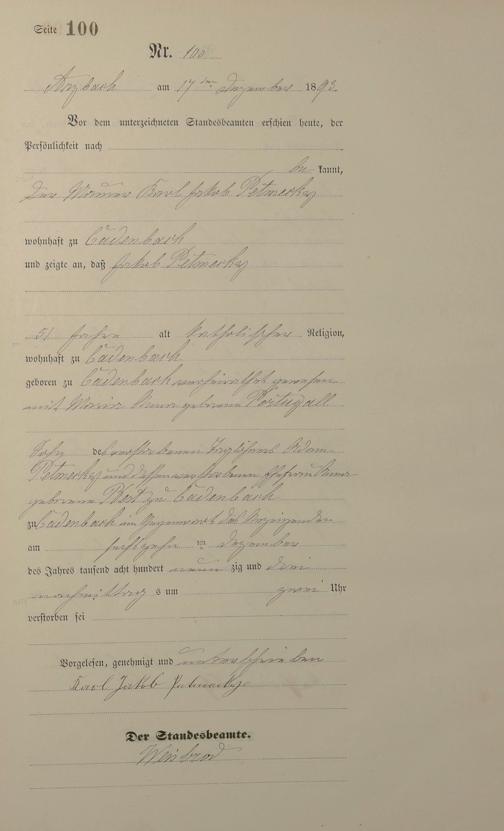 Seite 100
Nr. 100
Arzbach am 17ten Dezember 1893.
Vor dem unterzeichneten Standesbeamten erschien heute, der
Persönlichkeit nach
be kannt,
der Maurer Karl Jakob Petmecky
wohnhaft zu Cadenbach
und zeigte an, daß Jakob Petmecky
51 Jahre alt katholischer Religion,
wohnhaft zu Cadenbach
geboren zu Cadenbach verheirathet gewesen
mit Maria Anna geborene Portugall
Sohn des verstorbenen Taglöhners Adam
Petmecky und dessen verstorbenen Ehefrau Anna
geborene zu Cadenbach
zu Cadenbach in Gegenwart des Anzeigenden
am sechszehn ten Dezember
des Jahres tausend acht hundert neun zig und drei
nachmittag s um zwei Uhr
verstorben sei
Vorgelesen, genehmigt und unterschrieben
Karl Jakob Petmecky
Der Standesbeamte.